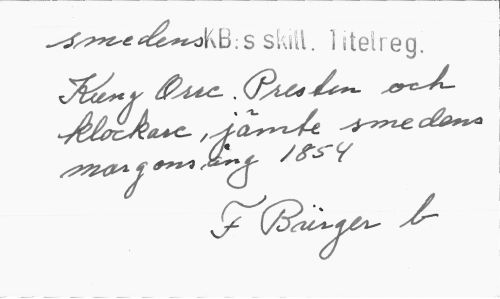 smedens KB:s skill. Titelreg.
Kung Orre. Presten och
klockare, jämte smedens
morgonsång 1854
F Bürger b